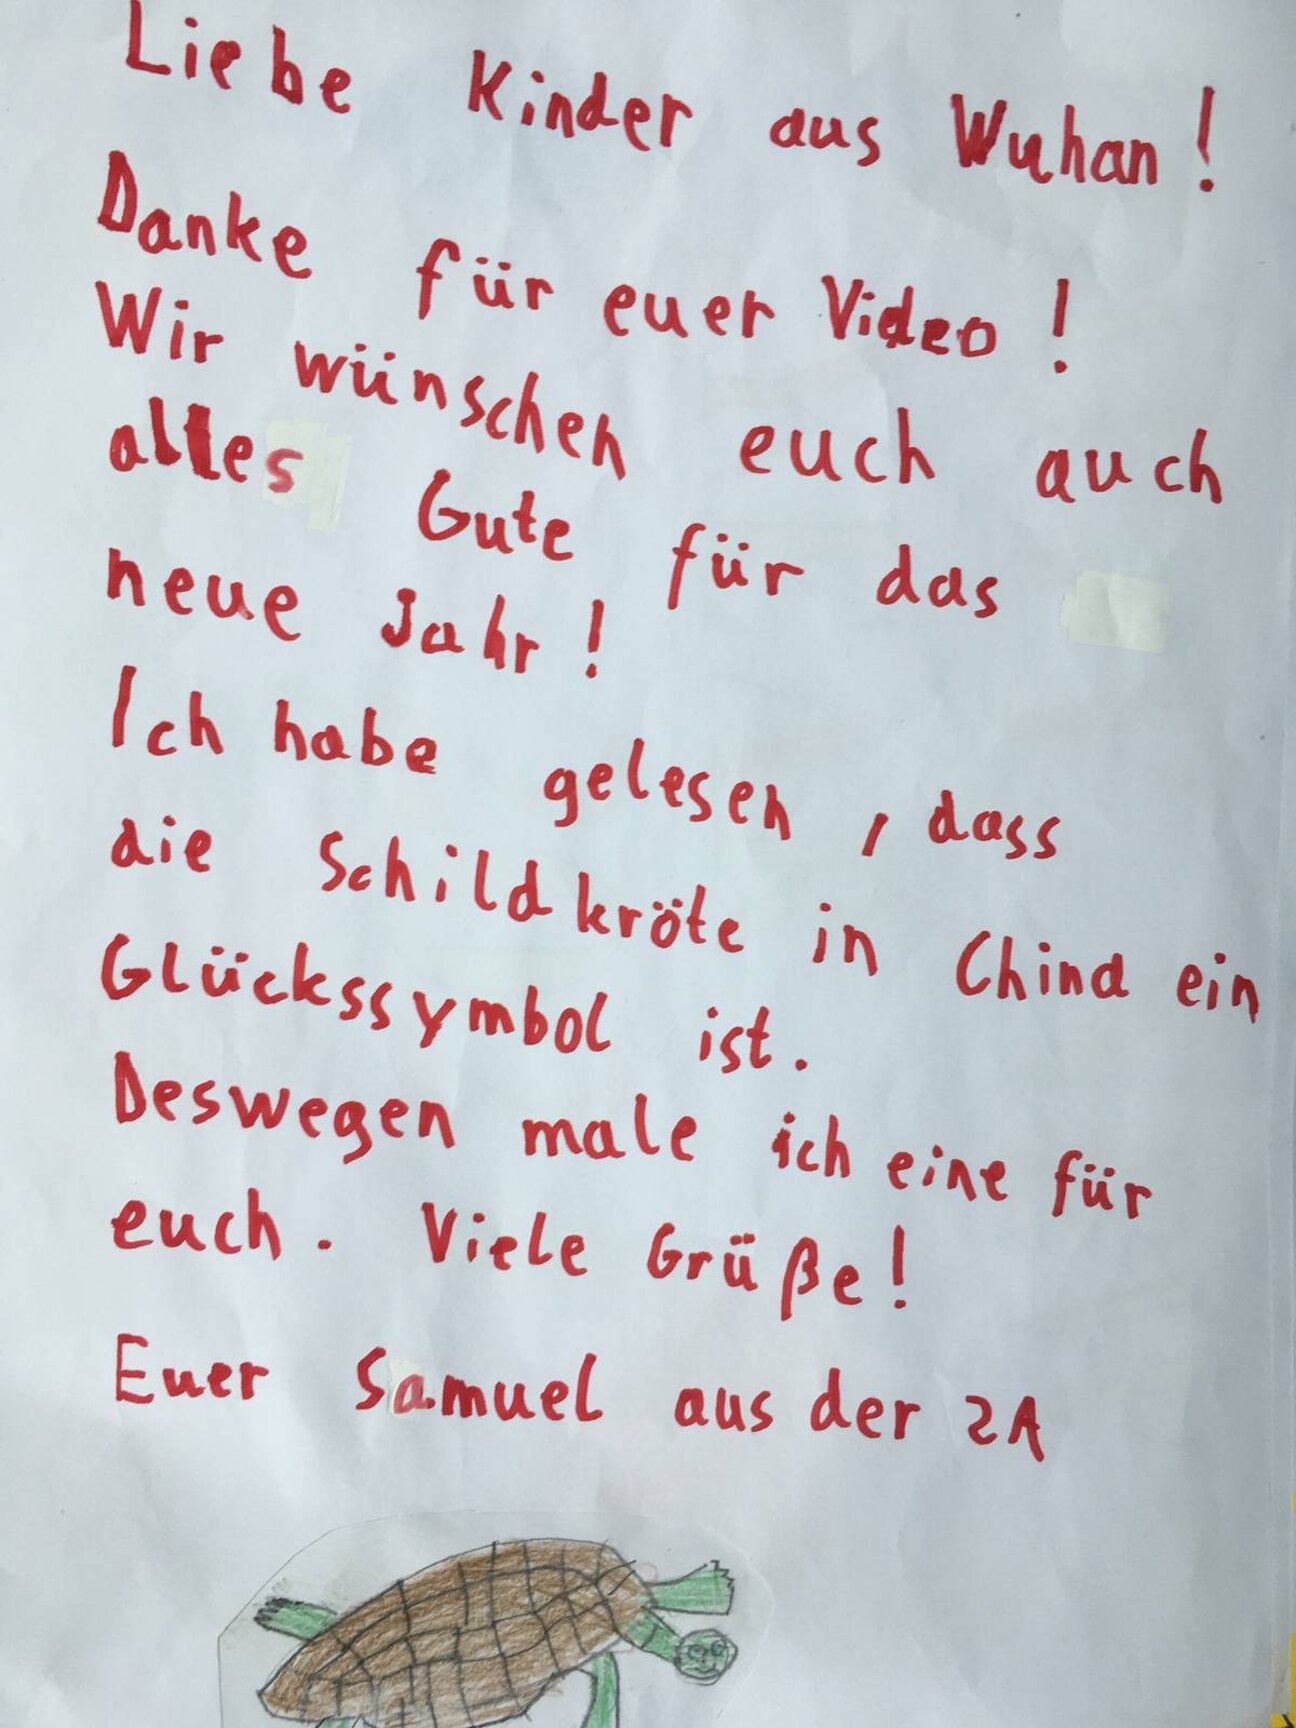 Liebe Kinder aus Wuhan!
Danke für euer Video!
Wir wünschen euch auch
alles Gute für das
neue Jahr!
Ich habe gelesen, dass
die Schildkröte in China ein
Glückssymbol ist.
Deswegen male ich eine für
euch. Viele Grüße!
Euer Samuel aus der 2A